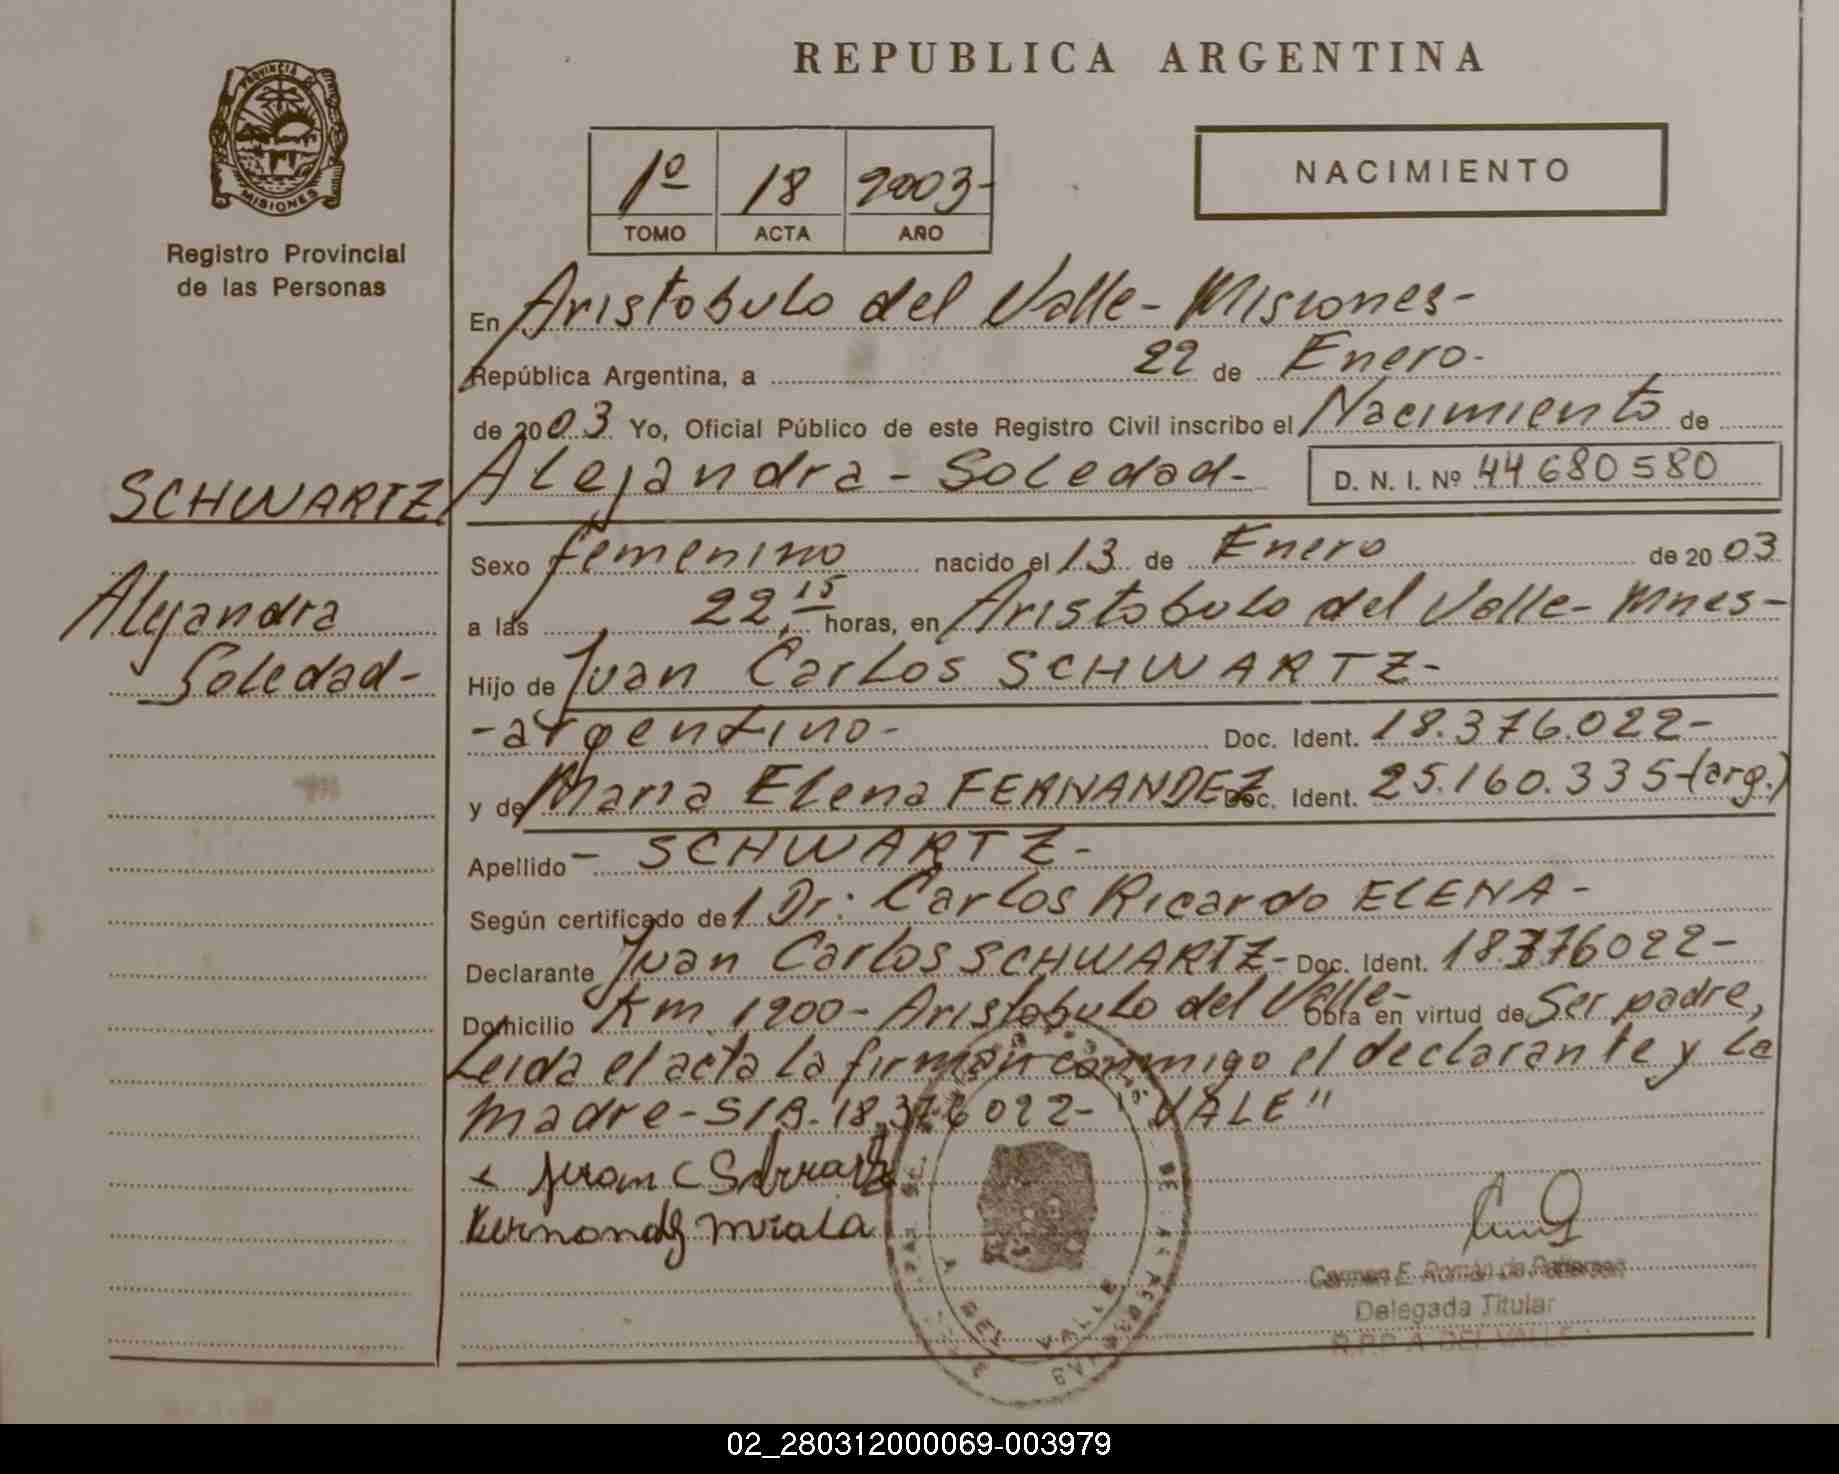 REPUBLICA ARGENTINA
PROVINCIA DE
MISIONES
Registro Provincial
de las Personas
1º 18 2003-
TOMO ACTA AÑO
NACIMIENTO
En Aristobulo del Valle - Misiones -
República Argentina, a 22 de Enero -
de 2003 Yo, Oficial Público de este Registro Civil inscribo el Nacimiento de
SCHWARTZ
Alejandra
Soledad -
Alejandra - Soledad - D. N. I. Nº 44680580
Sexo femenino nacido el 13 de Enero de 2003
a las 22,15 horas, en Aristobulo del Valle - Mnes -
Hijo de Juan Carlos SCHWARTZ -
- argentino - Doc. Ident. 18.376.022 -
y de Maria Elena FERNANDEZ Doc. Ident. 25.160.335 - (arg.)
Apellido - SCHWARTZ -
Según certificado del Dr: Carlos Ricardo ELENA -
Declarante Juan Carlos SCHWARTZ - Doc. Ident. 18376022 -
Domicilio Km 1200 - Aristobulo del Valle - Obra en virtud de Ser padre,
Leida el acta la firman conmigo el declarante y la
madre - S/B. 18.376022 - "VALE"
Juan C Schwartz
Delegada Titular
R.P.P. A. DEL VALLE
02_280312000069-003979